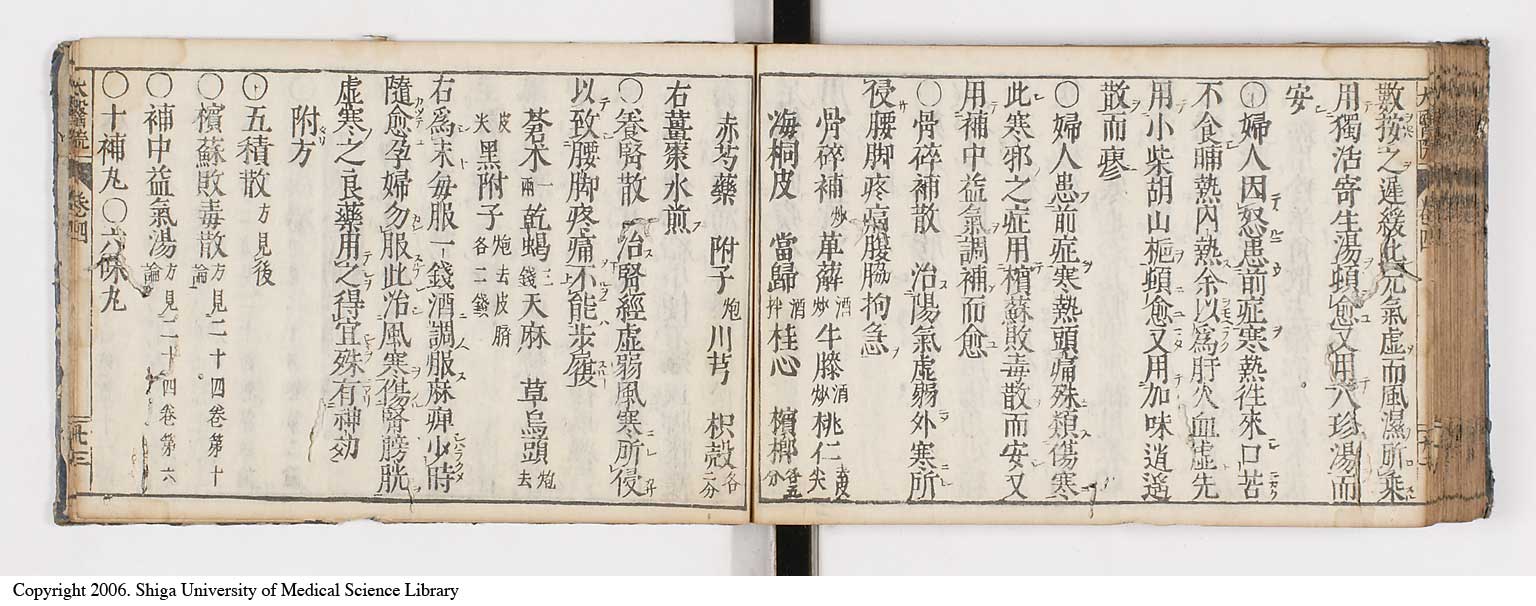 數按之遲緩此元氣虛而風濕所乘
用獨活寄生湯頓愈又用八珍湯而
安
○婦人因怒患前症寒熱往來口苦
不食晡熱內熱余以爲肝火血虛先
用小柴胡山梔頓愈又用加味逍遙
散而瘳
○婦人患前症寒熱頭痛殊類傷寒
此寒邪之症用檳蘇敗毒散而安又
用補中益氣調補而愈
○骨碎補散 治陽氣虛弱外寒所
侵腰脚疼痛腹脇拘急
骨碎補炒 萆薢酒炒 牛膝酒炒 桃仁去皮尖
海桐皮 當歸酒拌 桂心 檳榔各五分
赤芍藥 附子炮 川芎 枳殻各二分
右薑棗水煎
○養腎散 治腎經虛弱風寒所侵
以致腰脚疼痛不能步履
蒼朮一兩 乾蝎三錢 天麻 草烏頭炮去皮尖
黑附子炮去皮臍各二錢
右爲末每服一錢酒調服麻痺少時
隨愈孕婦勿服此治風寒傷腎膀胱
虛寒之良藥用之得宜殊有神効
附方
○五積散方見後
○檳蘇敗毒散方見二十四卷第十論
○補中益氣湯方見二十四卷第六論
○十補丸○六保丸
卷四
廿三
Copyright 2006. Shiga University of Medical Science Library